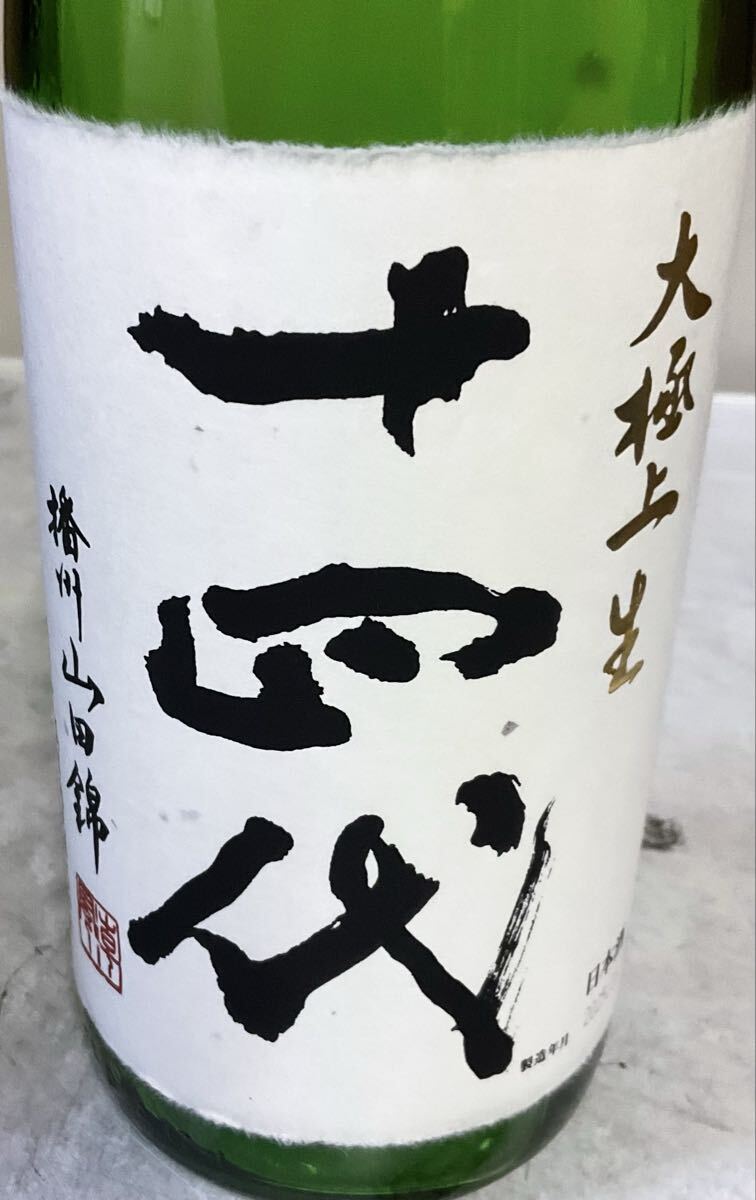 大極上 生
十四代
播州山田錦
日本酒
製造年月